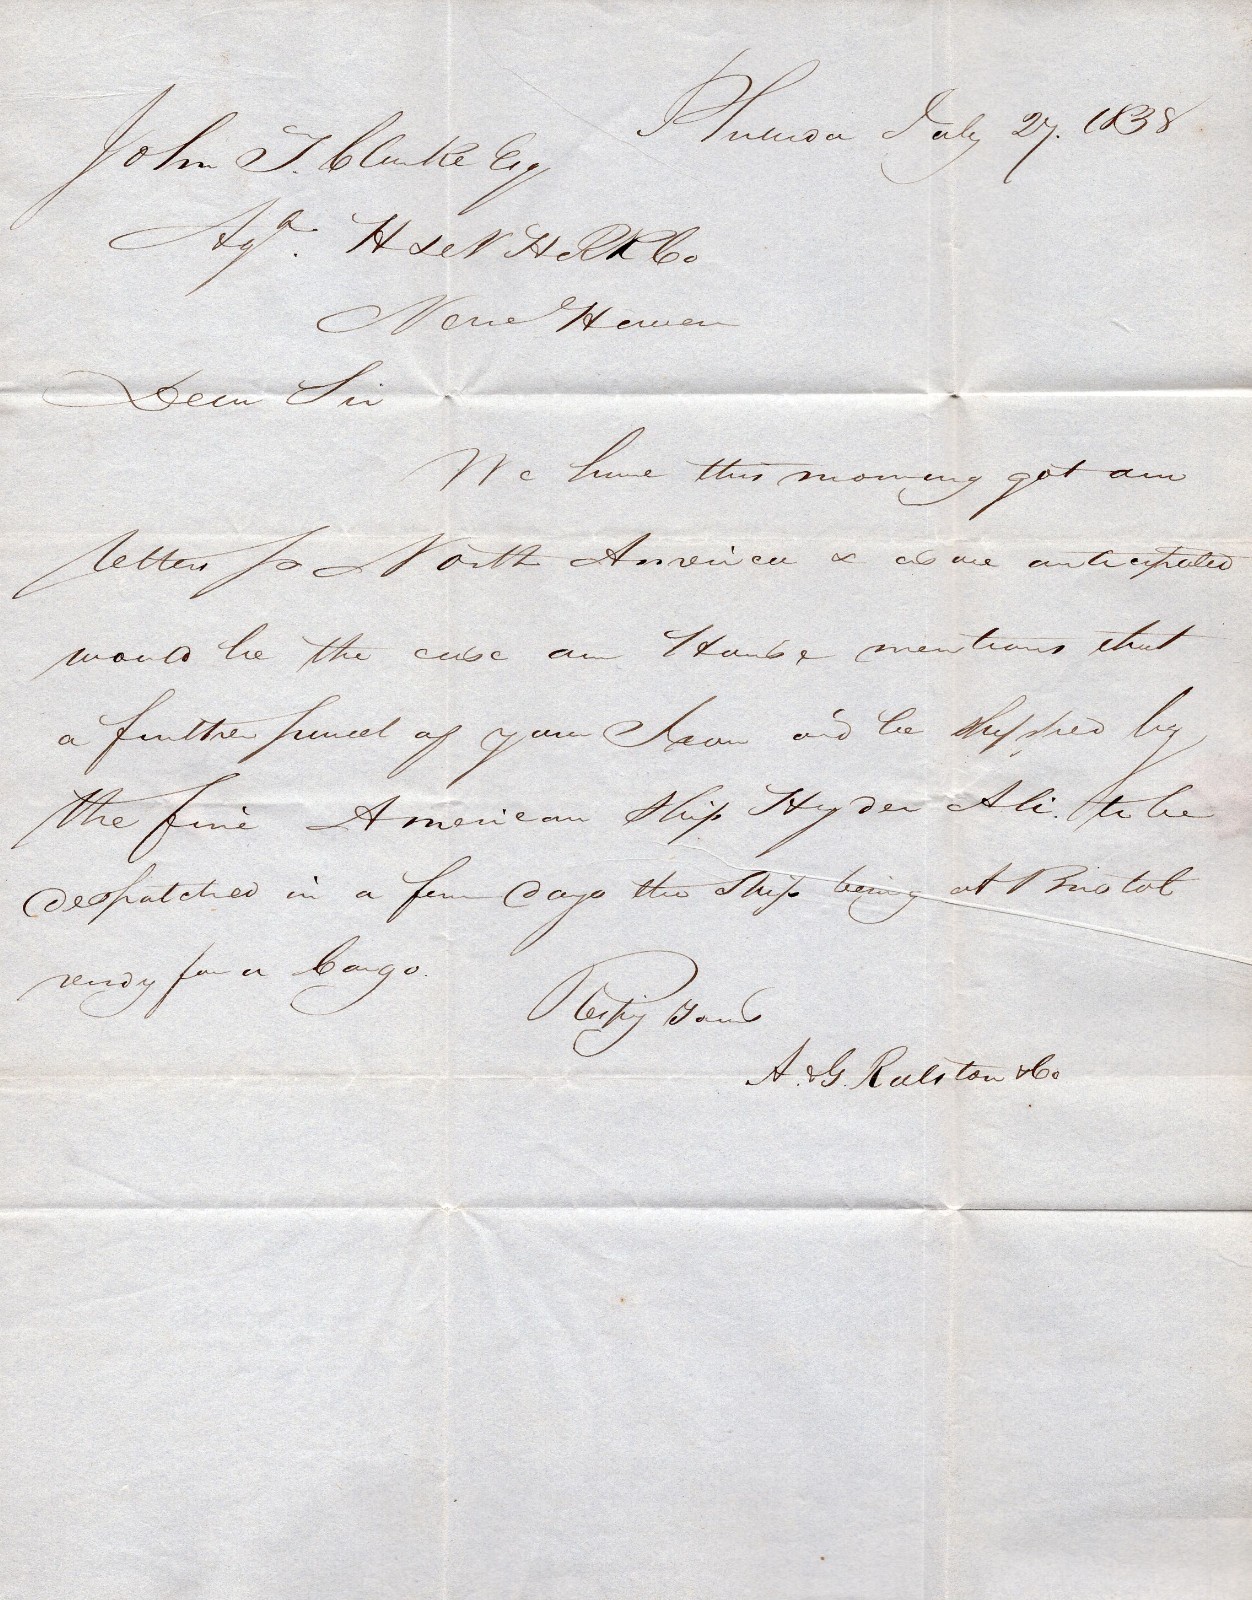 Philada July 27. 1838
John T. Clarke Esq
Agt. H & N H R R Co
New Haven
Dear Sir
We have this morning got our
letters p North America & as we anticipated
would be the case our House mentions that
a further parcel of your Iron wd be shipped by
the fine American Ship Hyder Ali. to be
despatched in a few days the Ship being at Bristol
ready for a Cargo.
Respy Yours
A. & G. Ralston & Co